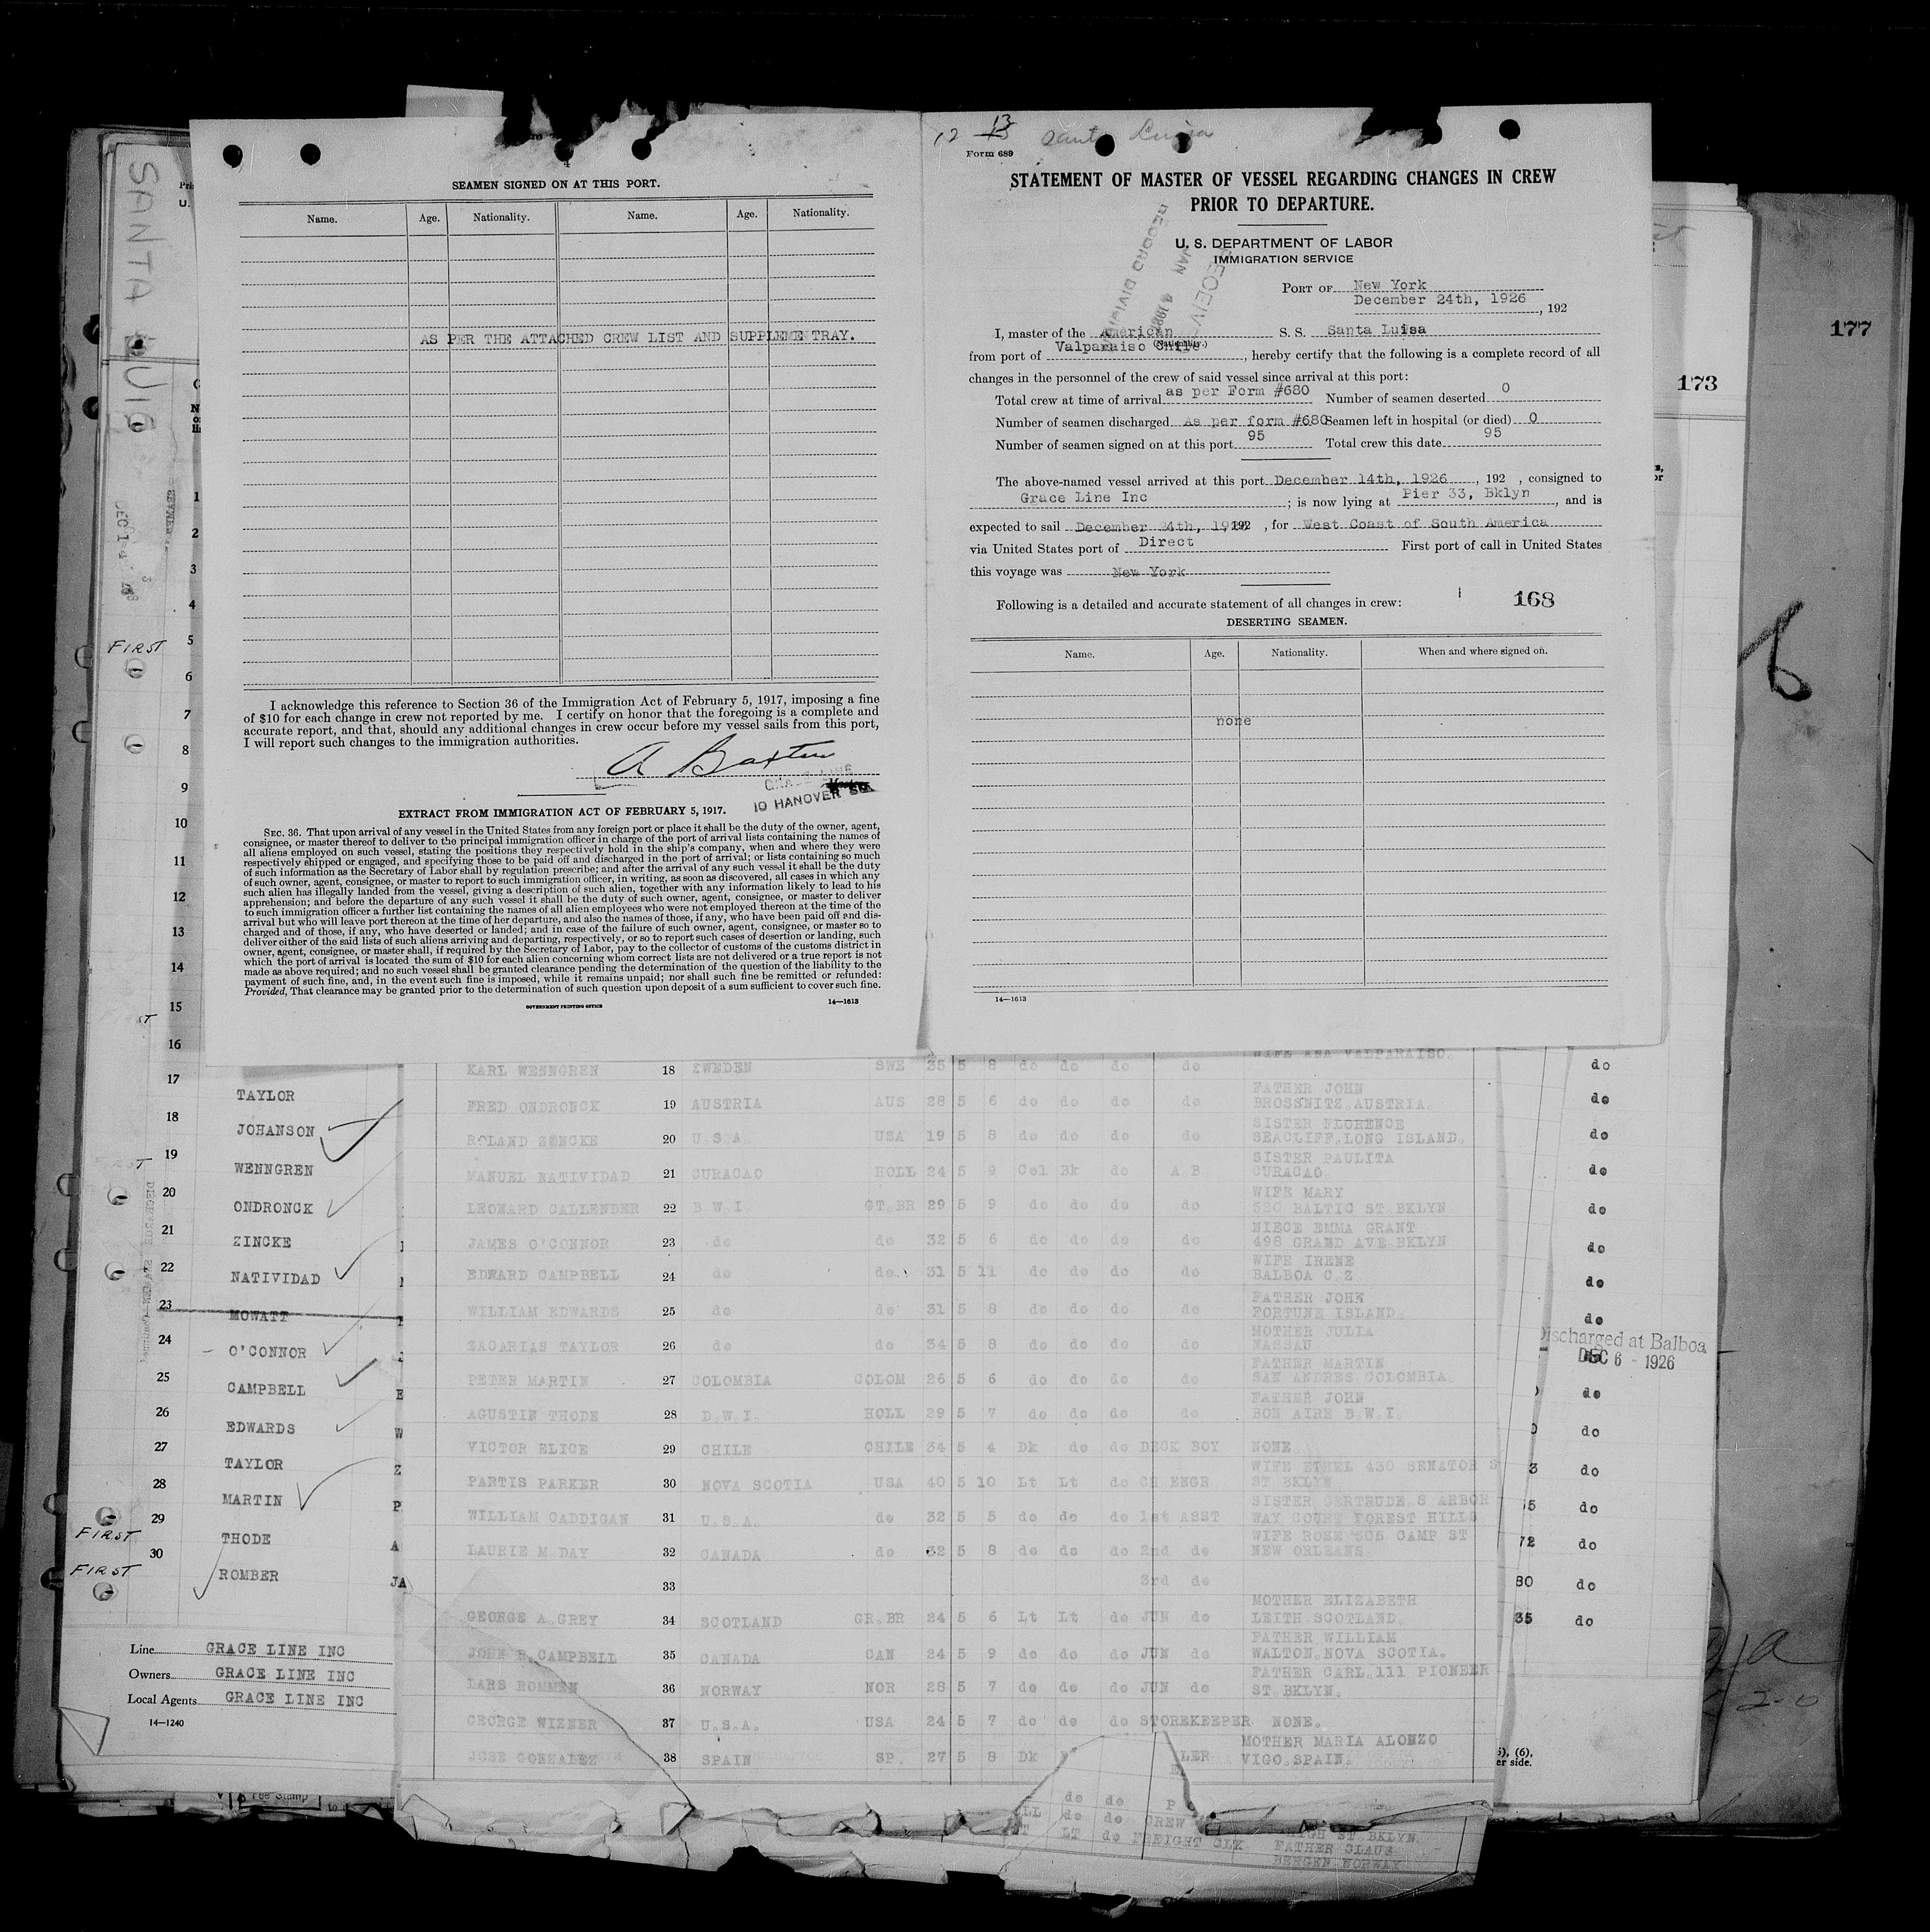 4
SEAMEN SIGNED ON AT THIS PORT.
Name. Age. Nationality. Name. Age. Nationality.
AS PER THE ATTACHED CREW LIST AND SUPPLEMENTRAY.
I acknowledge this reference to Section 36 of the Immigration Act of February 5, 1917, imposing a fine
of $10 for each change in crew not reported by me. I certify on honor that the foregoing is a complete and
accurate report, and that, should any additional changes in crew occur before my vessel sails from this port,
I will report such changes to the immigration authorities.
A Baxter
10 HANOVER SQ.
EXTRACT FROM IMMIGRATION ACT OF FEBRUARY 5, 1917.
SEC. 36. That upon arrival of any vessel in the United States from any foreign port or place it shall be the duty of the owner, agent,
consignee, or master thereof to deliver to the principal immigration officer in charge of the port of arrival lists containing the names of
all aliens employed on such vessel, stating the positions they respectively hold in the ship's company, when and where they were
respectively shipped or engaged, and specifying those to be paid off and discharged in the port of arrival; or lists containing so much
of such information as the Secretary of Labor shall by regulation prescribe; and after the arrival of any such vessel it shall be the duty
of such owner, agent, consignee, or master to report to such immigration officer, in writing, as soon as discovered, all cases in which any
such alien has illegally landed from the vessel, giving a description of such alien, together with any information likely to lead to his
apprehension; and before the departure of any such vessel it shall be the duty of such owner, agent, consignee, or master to deliver
to such immigration officer a further list containing the names of all alien employees who were not employed thereon at the time of the
arrival but who will leave port thereon at the time of her departure, and also the names of those, if any, who have been paid off and dis-
charged and of those, if any, who have deserted or landed; and in case of the failure of such owner, agent, consignee, or master so to
deliver either of the said lists of such aliens arriving and departing, respectively, or so to report such cases of desertion or landing, such
owner, agent, consignee, or master shall, if required by the Secretary of Labor, pay to the collector of customs of the customs district in
which the port of arrival is located the sum of $10 for each alien concerning whom correct lists are not delivered or a true report is not
made as above required; and no such vessel shall be granted clearance pending the determination of the question of the liability to the
payment of such fine, and, in the event such fine is imposed, while it remains unpaid; nor shall such fine be remitted or refunded:
Provided, That clearance may be granted prior to the determination of such question upon deposit of a sum sufficient to cover such fine.
GOVERNMENT PRINTING OFFICE 14—1613
12 13 Santa Luisa
Form 689
STATEMENT OF MASTER OF VESSEL REGARDING CHANGES IN CREW
PRIOR TO DEPARTURE.
U. S. DEPARTMENT OF LABOR
IMMIGRATION SERVICE
PORT OF New York
December 24th, 1926, 192
I, master of the American S. S. Santa Luisa
(Nationality.)
from port of Valparaiso Chile, hereby certify that the following is a complete record of all
changes in the personnel of the crew of said vessel since arrival at this port:
Total crew at time of arrival as per Form #680 Number of seamen deserted 0
Number of seamen discharged As per form #680 Seamen left in hospital (or died) 0
Number of seamen signed on at this port 95 Total crew this date 95
The above-named vessel arrived at this port December 14th, 1926, 192 , consigned to
Grace Line Inc ; is now lying at Pier 33, Bklyn, and is
expected to sail December 24th, 1926 192 , for West Coast of South America
via United States port of Direct First port of call in United States
this voyage was New York
Following is a detailed and accurate statement of all changes in crew: 168
DESERTING SEAMEN.
Name. Age. Nationality. When and where signed on.
none
14—1613
177
173
SANTA LUISA
1
2
3
4
FIRST 5
6
7
8
9
10
11
12
13
14
15
16
17 TAYLOR
18 JOHANSON
19 WENNGREN
20 ONDRONCK
21 ZINCKE
22 NATIVIDAD
23 MOWATT
24 O'CONNOR
25 CAMPBELL
26 EDWARDS
27 TAYLOR
28 MARTIN
FIRST 29 THODE
FIRST 30 ROMBER
Line GRACE LINE INC
Owners GRACE LINE INC
Local Agents GRACE LINE INC
14—1240
WIFE ANA VALPARAISO.
KARL WENNGREN 18 SWEDEN SWE 35 5 8 do do do do
FATHER JOHN
FRED ONDRONCK 19 AUSTRIA AUS 28 5 6 do do do do BROSSNITZ AUSTRIA.
SISTER FLORENCE
ROLAND ZINCKE 20 U S A USA 19 5 8 do do do do SEACLIFF.LONG ISLAND.
SISTER PAULITA
MANUEL NATIVIDAD 21 CURACAO HOLL 24 5 9 Col Bk do A B CURACAO.
WIFE MARY
LEONARD CALLENDER 22 B W I GT.BR 29 5 9 do do do do 580 BALTIC ST BKLYN
NIECE EMMA GRANT
JAMES O'CONNOR 23 do do 32 5 6 do do do do 498 GRAND AVE BKLYN
WIFE IRENE
EDWARD CAMPBELL 24 do do. 31 5 11 do do do do BALBOA C Z
FATHER JOHN
WILLIAM EDWARDS 25 do do 31 5 8 do do do do FORTUNE ISLAND.
MOTHER JULIA
ZACARIAS TAYLOR 26 do do 34 5 8 do do do do NASSAU
FATHER MARTIN
PETER MARTIN 27 COLOMBIA COLOM 26 5 6 do do do do SAN ANDRES COLOMBIA.
FATHER JOHN
AGUSTIN THODE 28 D.W.I. HOLL 29 5 7 do do do do BON AIRE B.W.I.
VICTOR ELICE 29 CHILE CHILE 34 5 4 Dk do do DECK BOY NONE
WIFE ETHEL 430 SENATOR S
PARTIS PARKER 30 NOVA SCOTIA USA 40 5 10 Lt Lt do CH ENGR ST BKLYN
SISTER GERTRUDE 8 ARBOR
WILLIAM CADDIGAN 31 U.S.A. do 32 5 5 do do do 1st ASST WAY COURT FOREST HILLS
WIFE ROSE 505 CAMP ST
LAURIE M DAY 32 CANADA do 32 5 8 do do do 2nd do NEW ORLEANS
33 3rd do
MOTHER ELIZABETH
GEORGE A.GREY 34 SCOTLAND GR.BR 24 5 6 Lt Lt do JUN do LEITH SCOTLAND.
FATHER WILLIAM
JOHN R.CAMPBELL 35 CANADA CAN 24 5 9 do do do JUN do WALTON.NOVA SCOTIA.
FATHER CARL.111 PIONEER
LARS ROMMEN 36 NORWAY NOR 28 5 7 do do do JUN do ST.BKLYN.
GEORGE WIZNER 37 U.S.A. USA 24 5 7 do do do STOREKEEPER NONE.
MOTHER MARIA ALONZO
JOSE GONZALEZ 38 SPAIN SP. 27 5 8 Dk LER VIGO.SPAIN.
do do P
do do CREW HIGH ST BKLYN.
LT do FREIGHT CLK FATHER CLAUS
BERGEN NORWAY
do
do
do
do
do
do
do
do
Discharged at Balboa
DEC 6 - 1926
do
do
do
do
72 do
80 do
35 do